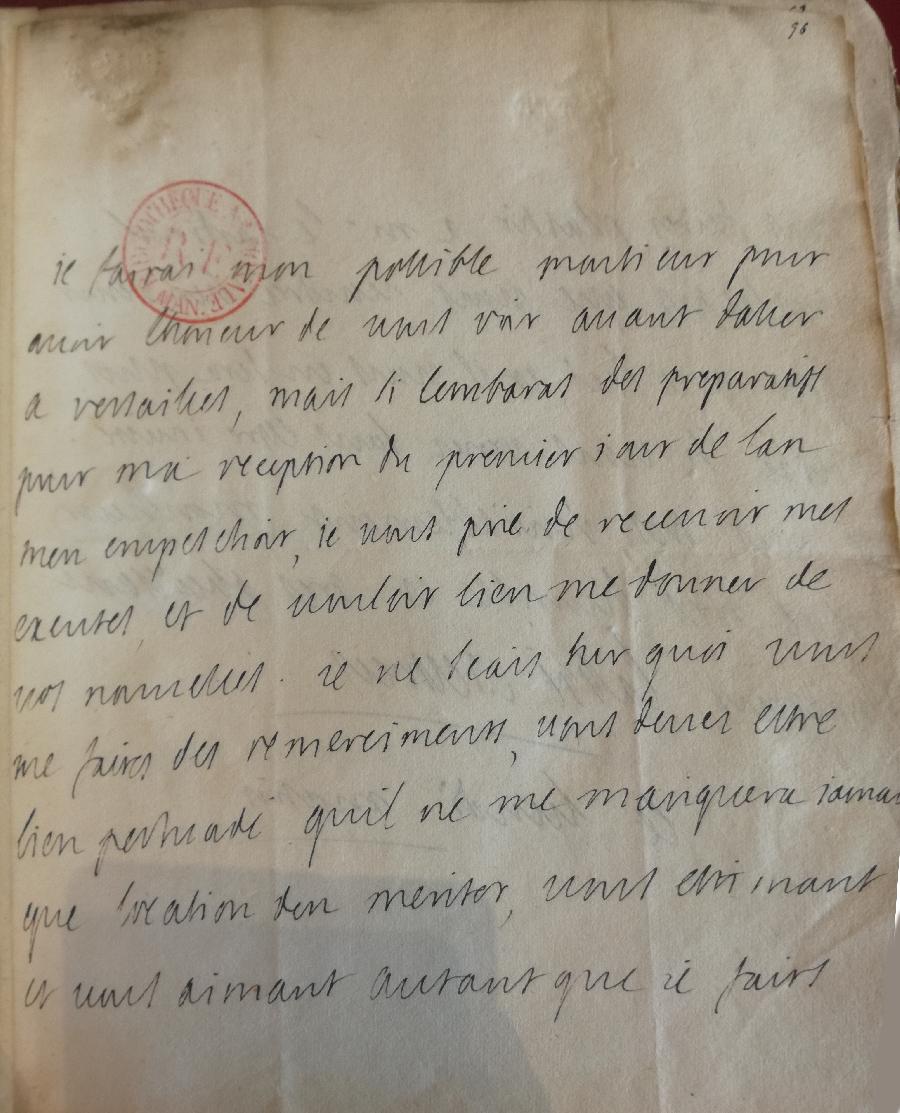 96
ie fairai mon possible monsieur pour
auoir lhoneur de uous voir auant daller
a versailles, mais si lembaras des preparatifs
pour ma reception du premier iour de lan
men empeschoir, ie uous prie de receuoir mes
excuses, et de uouloir bien me donner de
uos nouuelles. ie ne scais sur quoi uous
me faires des remercimens, uous deues estre
bien persuadé quil ne me manquera iamais
que location den meriter, uous estimant
et uous aimant autant que ie fairs